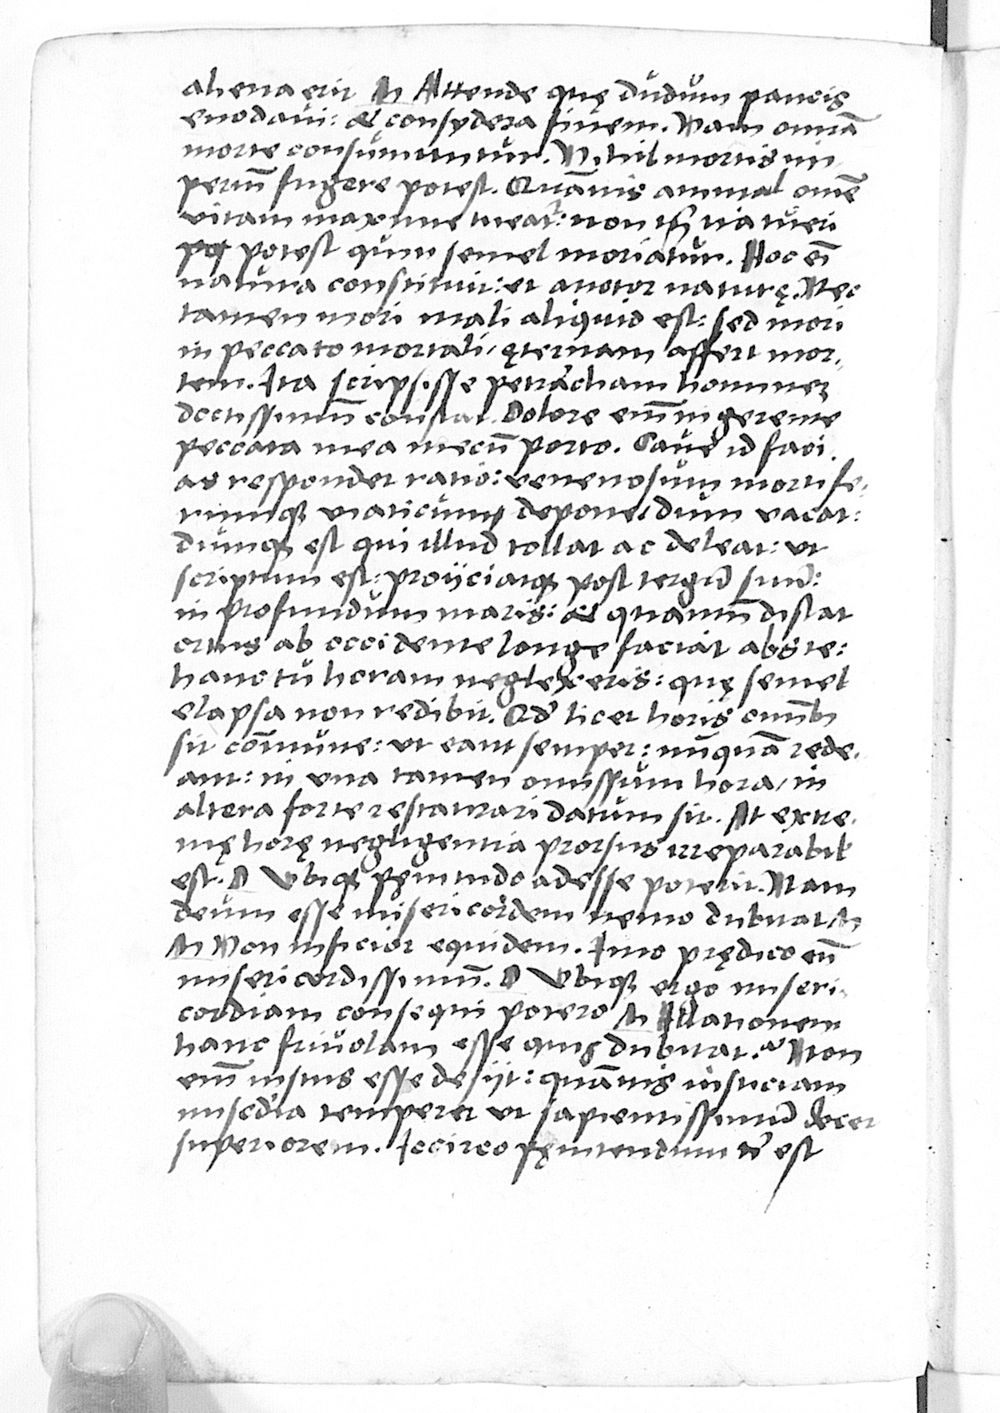 aliena erit N Attende quę dudum paucis
enodavi: & consydera finem. Nam omnia
morte consumuntur. Nihil mortis im
periū fugere potest. Quāvis animal omē
vitam maxime tueat: non ita tueri
potest quin semel moriatur. Hoc ei
natura constituit: et auctor naturę. Nec
tamen mori mali aliquid est: sed mori
in peccato mortali, ęternam affert mor,
tem. Ita scripsisse petracham hominez
doctissimū constat. Dolore eni ingerente
peccata mea mecū porto. Cave id faci,
as respondet ratio: venenosum mortife,
rumq; viaticum deponendum vacat:
dumq; est qui illud tollat ac deleat: ut
scriptum est: proijciatq; post tergū suū:
in profundum maris: & quantū distat
ortus ab occidente longe faciat abs te:
hanc tu horam neglexeris: quę semel
elapsa non redibit. Qd' licet horis omnib;
sit cōmune: ut eant semper: nūquā rede,
ant: in una tamen omissum hora, in
altera forte restaurari datum sit. At extre,
mę horę negligentia prorsus irreparabil
est. D Ubiq; pęnitudo adesse poterit. Nam
deum esse misericordem nemo dubitat N
N Non inficior equidem. Imo prędico eū
misericordissimū. D Ubiq; ergo miseri,
cordiam consequi potero N Illationem
hanc frivolam esse quis dubitat. Non
eni iustus esse desijt: quāvis iusticiam
mis̄edia temperet ut sapientissimū decet
superiorem. Iccirco pęnitendum t̄ est